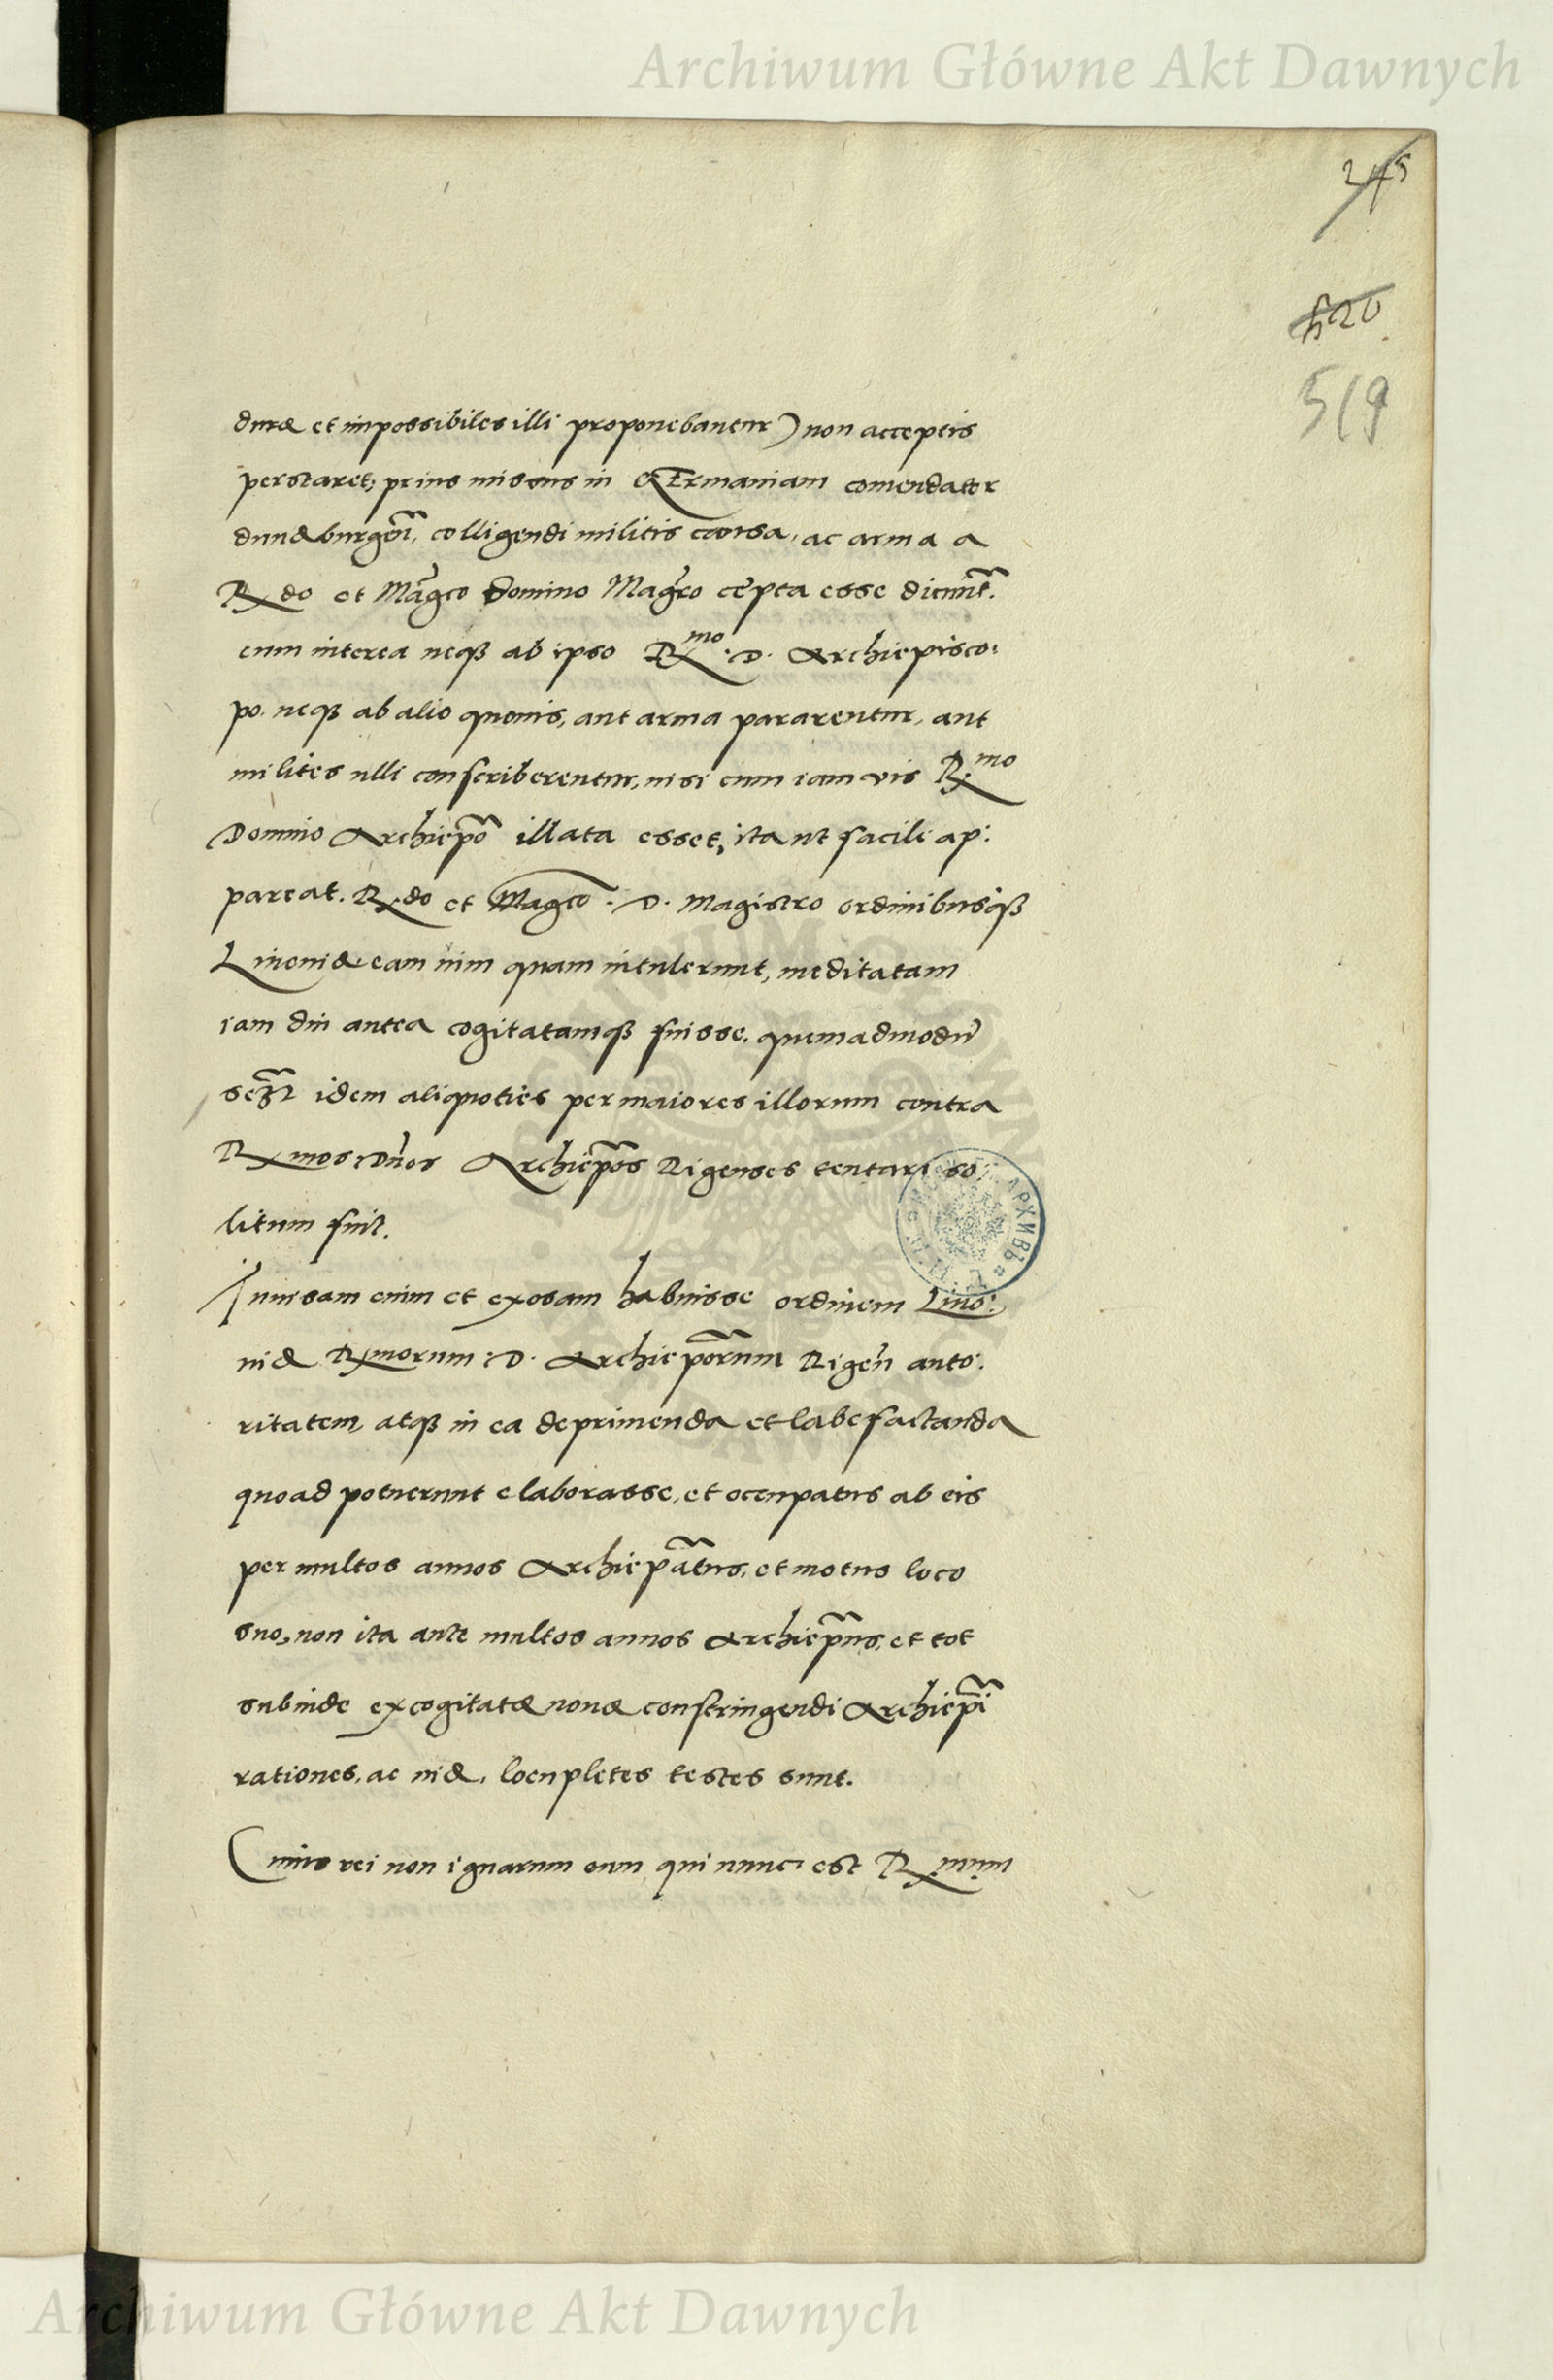 Archiwum Główne Akt Dawnych
245
520
519
duræ et impossibiles illi proponebantur) non acceptis
perstaret, prius missus in GErmaniam comendator
dunæburgeñ, colligendi militis causa, ac arma a
Rdo et Magco Domino Magro cepta esse dicunt.
cum interea neqȝ ab ipso Rmo. D. Archiepisco:
po. neqȝ ab alio quouis, aut arma pararentur, aut
milites ulli conscriberentur, nisi cum iam vis R.mo
Domino Archiepō illata esset, ita ut facile ap:
pareat. R.do et Magco. D. Magistro ordinibusqȝ
Liuoniæ eam uim quam intulerunt, meditatam
iam diu antea cogitatamqȝ fuisse. quemadmodū
idem aliquoties per maiores illorum contra
Rxmos Dños Archiepos Rigenses tentari so
litum fuit.
Inuisam enim et exosam habuisse ordinem Liuo:
niæ Rxmorum: D. Archieporum Rigeñ auto:
ritatem, atqȝ in ea deprimenda et labefactanda
quoad potuerunt elaborasse, et occupatus ab eis
per multos annos Archiepatus, et motus loco
suo, non ita ante multos annos Archiepus, et tot
subinde excogitatæ nouæ constringendi Archiepi
rationes, ac uiæ, locupletes testes sunt.
Cuius rei non ignarum eum, qui nunc est Rxmum
АРХИВЪ
Archiwum Główne Akt Dawnych